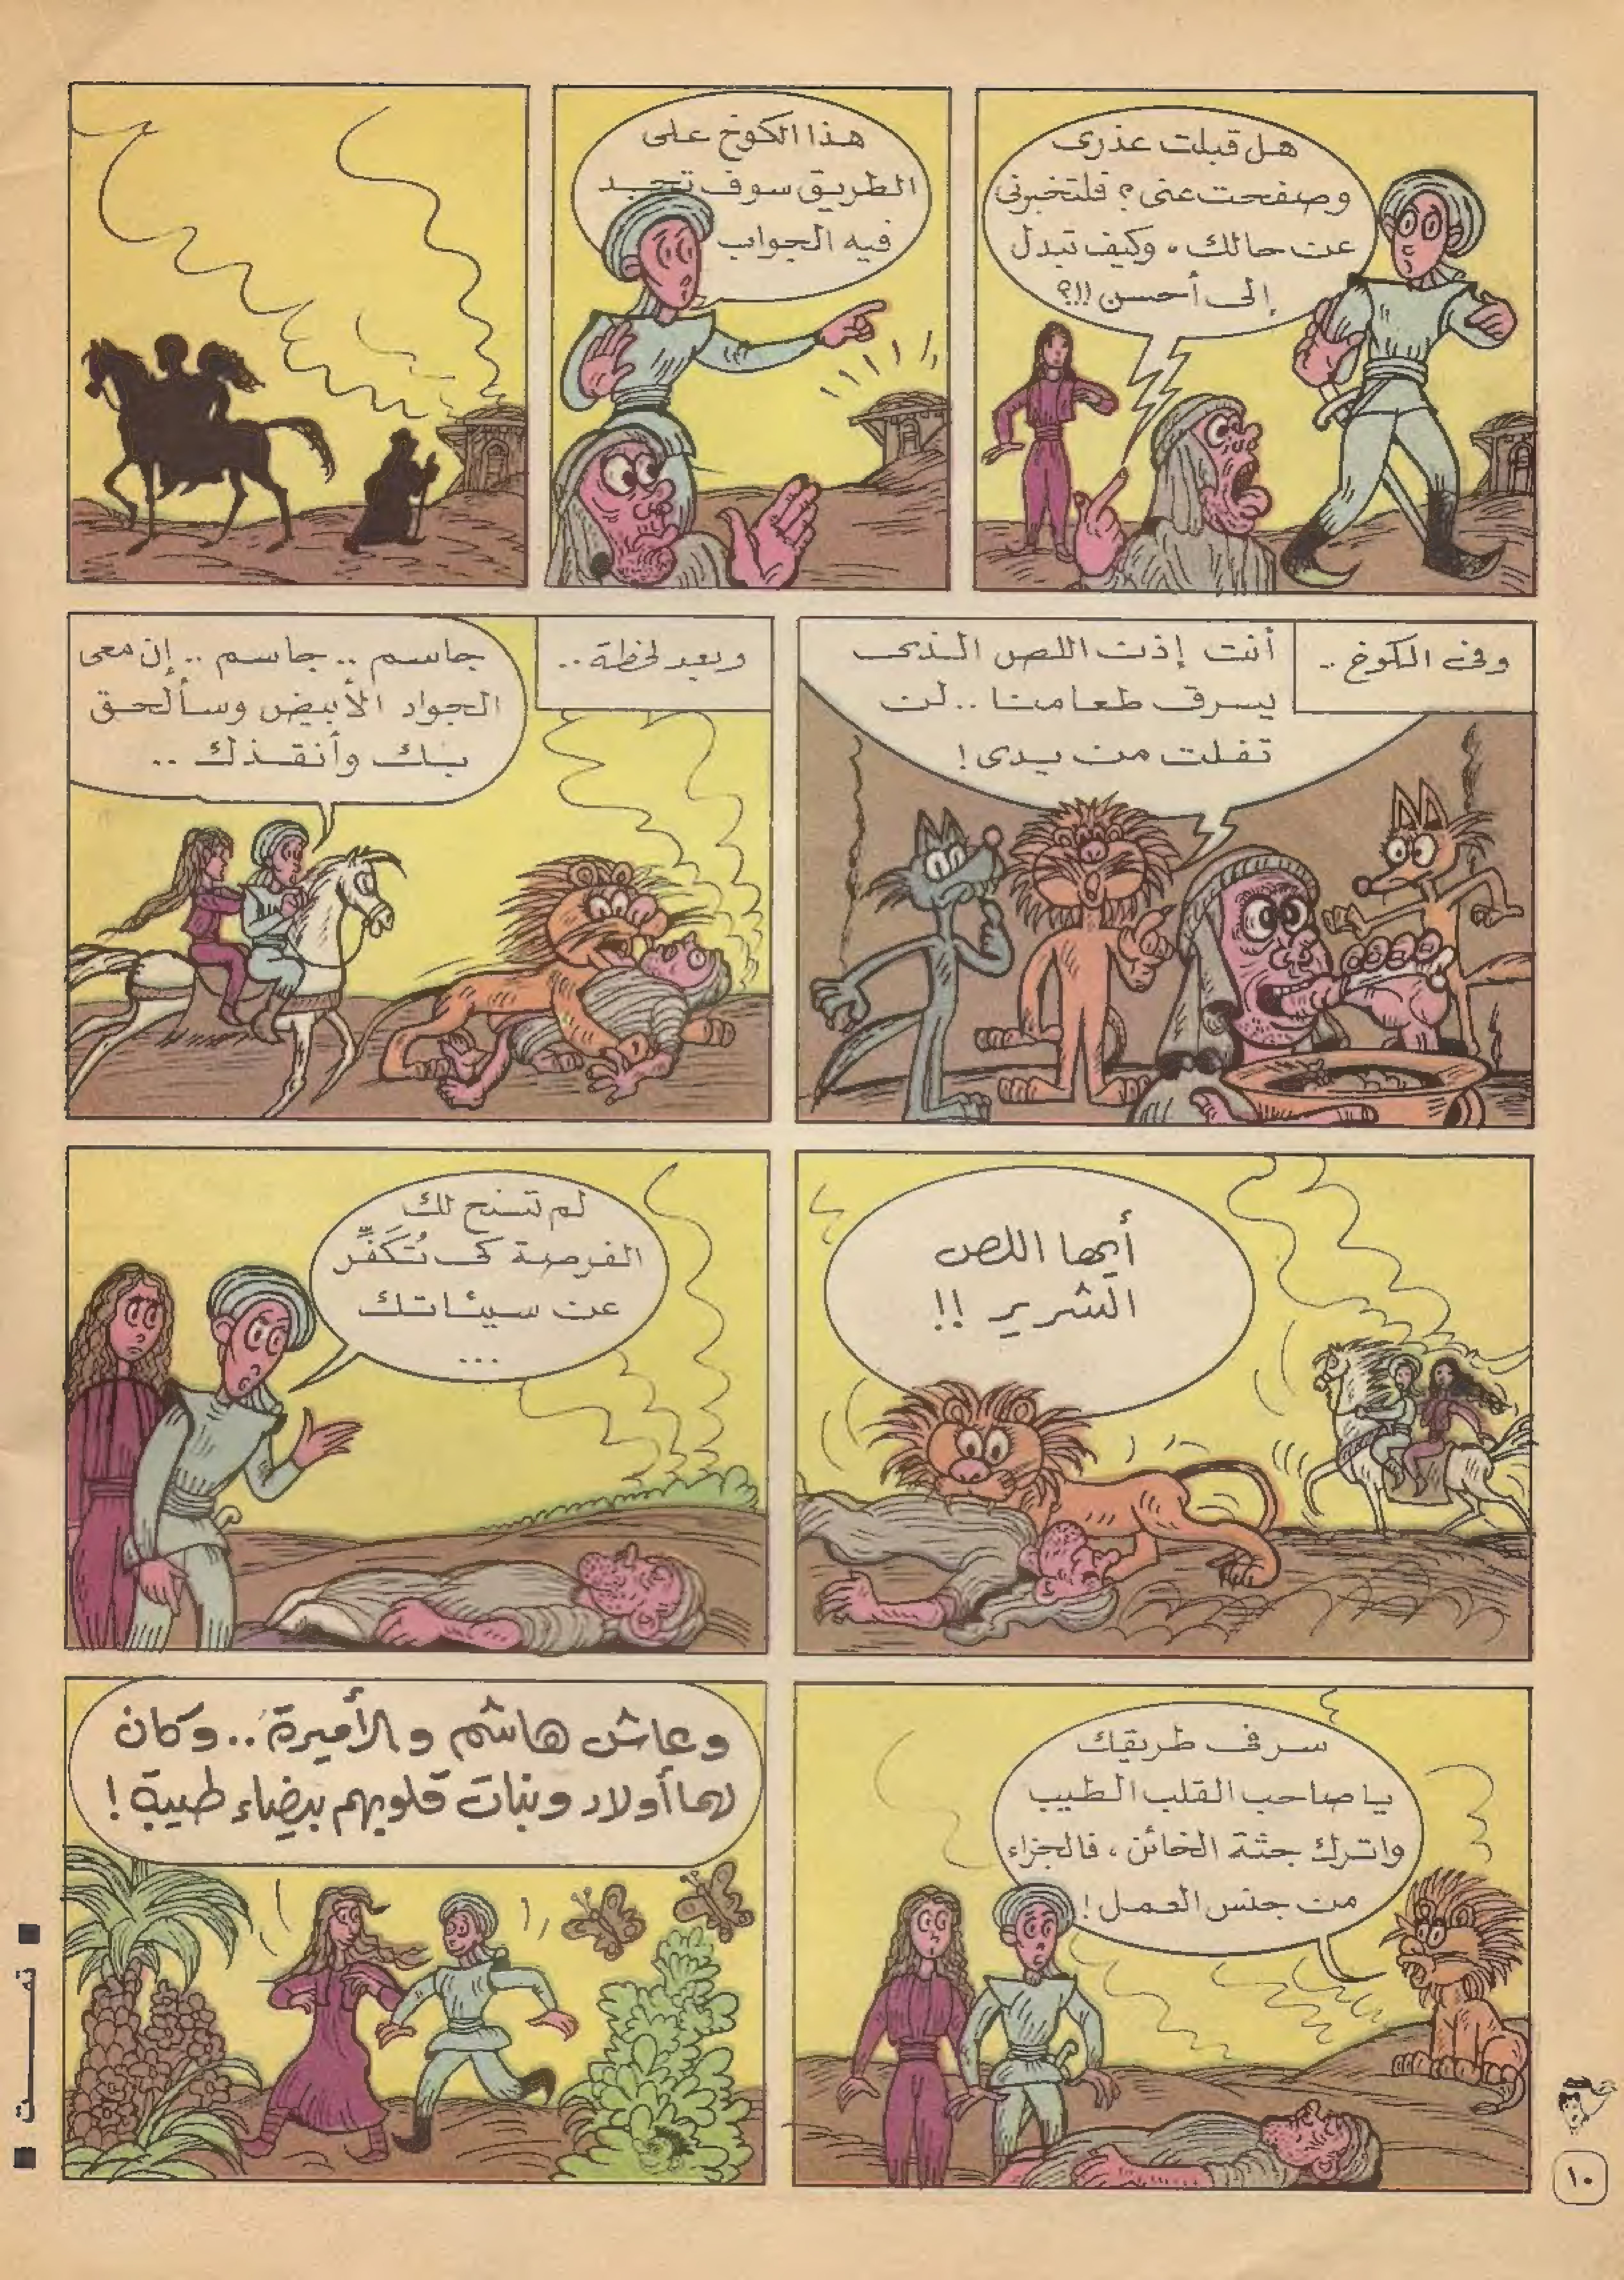 هل قبلت عذرى
وصفحت عنى؟ فلتخبرنى
عن حالك، وكيف تبدل
إلى أحسن!!؟
هذا الكوخ على
الطريق سوف تجد
فيه الجواب
وفى الكوخ ..
أنت إذن اللص الذى
يسرق طعامنا .. لن
تفلت من يدى!
وبعد لحظة ..
جاسم .. جاسم .. إن معى
الجواد الأبيض وسألحق
بك وأنقذك ..
أيها اللص
الشرير !!
لم تسنح لك
الفرصة كى تُكَفِّر
عن سيئاتك
...
سر فى طريقك
يا صاحب القلب الطيب
واترك جثة الخائن، فالجزاء
من جنس العمل!
وعاش هاشم والأميرة .. وكان
لهما أولاد وبنات قلوبهم بيضاء طيبة!
تمت
١٠